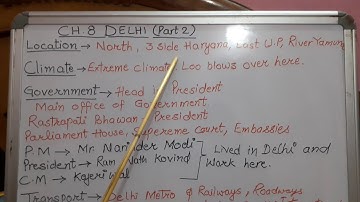 CH.8 DELHI (Part 2)
Location → North, 3 side Haryana, East U.P, River Yamuna
Climate → Extreme climate, Loo blows over here.
Government → Head is President
Main office of Government
Rastrapati Bhawan - President
Parliament House, Supereme Court, Embassies
P.M → Mr. Narinder Modi
President → Ram Nath Kovind
C.M → Kejeriwal
Lived in Delhi and
Work here.
Transport → Delhi Metro & Railways, Roadways